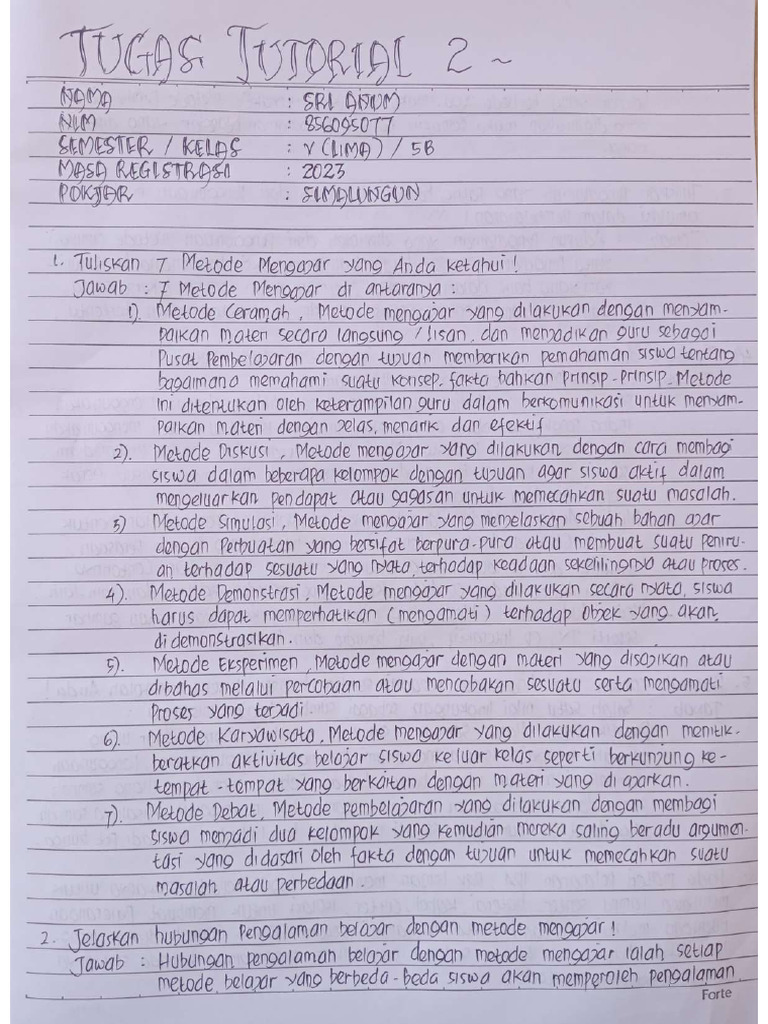 TUGAS TUTORIAL 2 ~
NAMA : SRI ANUM
NIM : 856095077
SEMESTER / KELAS : V (LIMA) / 5B
MASA REGISTRASI : 2023
POKJAR : SIMALUNGUN
1. Tuliskan 7 Metode Mengajar yang Anda ketahui !
Jawab : 7 Metode Mengajar di antaranya :
1). Metode Ceramah, Metode mengajar yang dilakukan dengan menyam-
paikan materi secara langsung / lisan, dan menjadikan guru sebagai
pusat pembelajaran dengan tujuan memberikan pemahaman siswa tentang
bagaimana memahami suatu konsep, fakta bahkan prinsip-prinsip. Metode
ini ditentukan oleh keterampilan guru dalam berkomunikasi untuk menyam-
paikan materi dengan jelas, menarik dan efektif
2). Metode Diskusi, Metode mengajar yang dilakukan dengan cara membagi
siswa dalam beberapa kelompok dengan tujuan agar siswa aktif dalam
mengeluarkan pendapat atau gagasan untuk memecahkan suatu masalah.
3) Metode Simulasi, Metode mengajar yang menjelaskan sebuah bahan ajar
dengan perbuatan yang bersifat berpura-pura atau membuat suatu peniru-
an terhadap sesuatu yang nyata, terhadap keadaan sekelilingnya atau proses.
4). Metode Demonstrasi, Metode mengajar yang dilakukan secara nyata, siswa
harus dapat memperhatikan (mengamati) terhadap objek yang akan
di demonstrasikan.
5). Metode Eksperimen, Metode mengajar dengan materi yang disajikan atau
dibahas melalui percobaan atau mencobakan sesuatu serta mengamati
proses yang terjadi.
6). Metode Karyawisata, Metode mengajar yang dilakukan dengan menitik-
beratkan aktivitas belajar siswa ke luar kelas seperti berkunjung ke-
tempat-tempat yang berkaitan dengan materi yang di ajarkan.
7). Metode Debat, Metode pembelajaran yang dilakukan dengan membagi
siswa menjadi dua kelompok yang kemudian mereka saling beradu argumen-
tasi yang didasari oleh fakta dengan tujuan untuk memecahkan suatu
masalah atau perbedaan.
2. Jelaskan hubungan pengalaman belajar dengan metode mengajar !
Jawab : Hubungan pengalaman belajar dengan metode mengajar ialah setiap
metode belajar yang berbeda-beda siswa akan memperoleh pengalaman
Forte